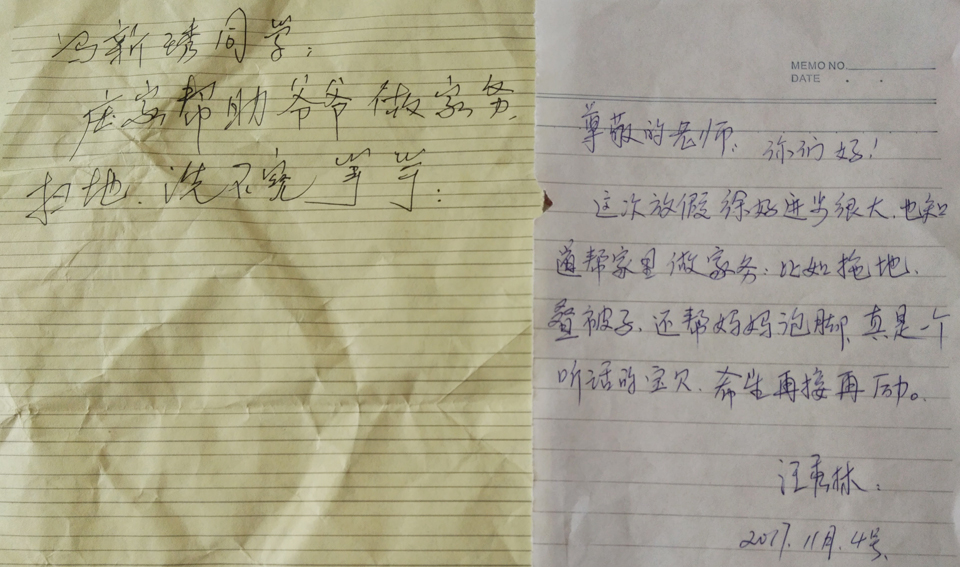 冯新琇同学:
在家帮助爷爷做家务.
扫地.洗不完等等:
MEMO NO.
DATE . .
尊敬的老师: 你们好!
这次放假徐好进步很大.也知
道帮家里做家务.比如拖地.
叠被子.还帮妈妈泡脚.真是一个
听话的宝贝.希望再接再励。
汪秀林:
2017.11月.4号.